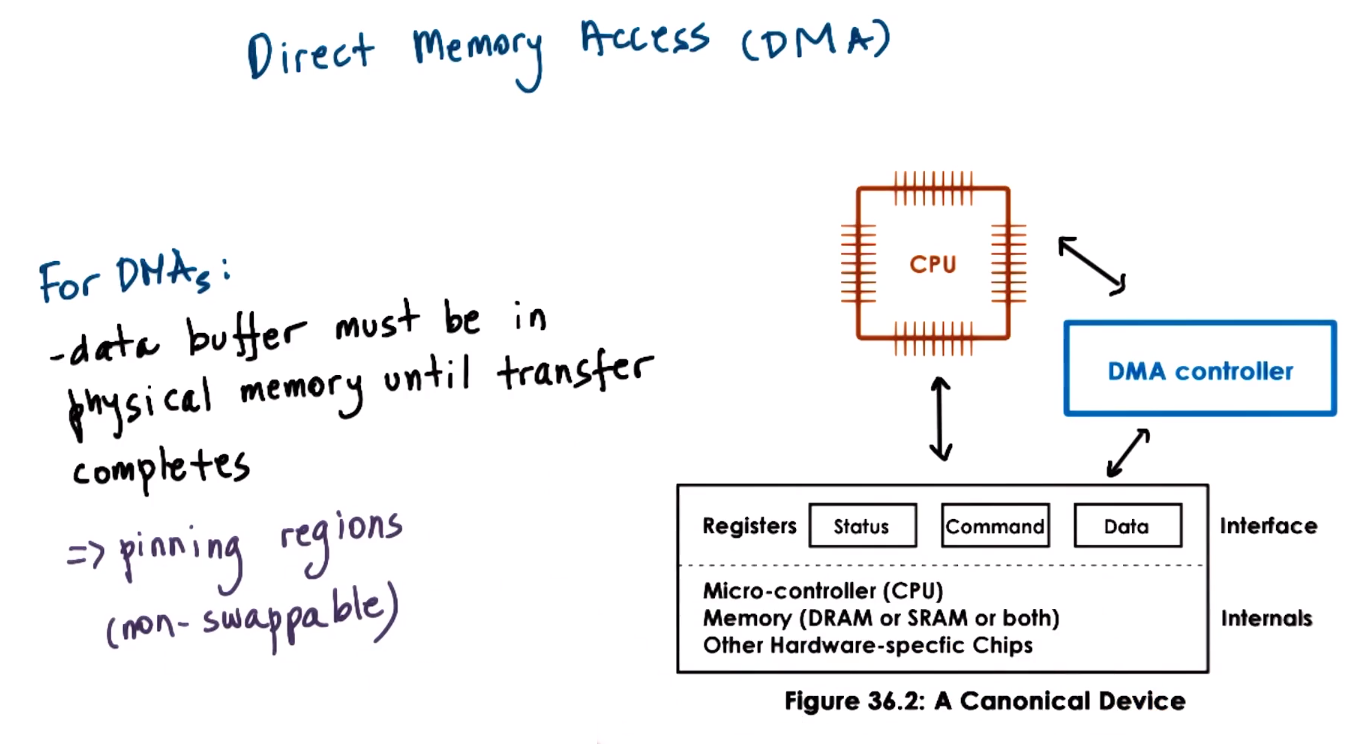 Direct Memory Access (DMA)
For DMAs:
-data buffer must be in
physical memory until transfer
completes
=> pinning regions
(non-swappable)
CPU
DMA controller
Registers Status Command Data Interface
Micro-controller (CPU)
Memory (DRAM or SRAM or both) Internals
Other Hardware-specfic Chips
Figure 36.2: A Canonical Device